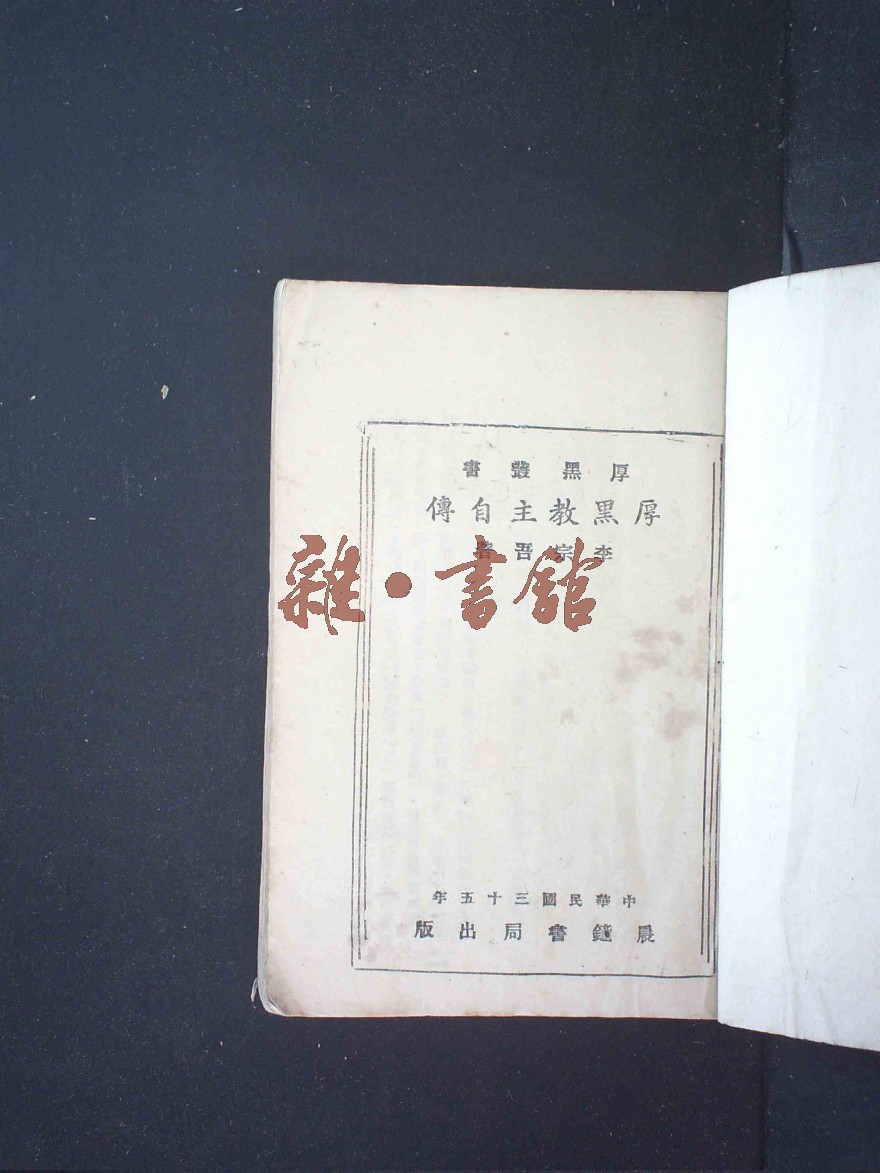 厚黑叢書
厚黑教主自傳
李宗吾著
雜·書館
中華民國三十五年
晨鐘書局出版